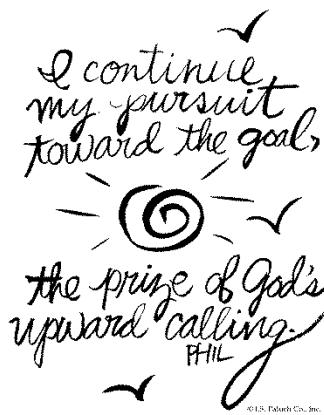 I continue
my pursuit
toward the goal,
the prize of God's
upward calling.
PHIL
© J.S. Paluch Co., Inc.